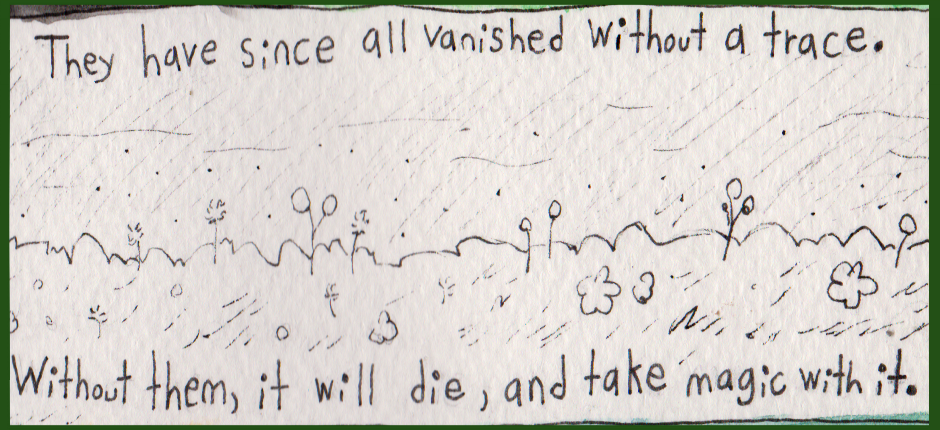 They have since all vanished without a trace.
Without them, it will die, and take magic with it.